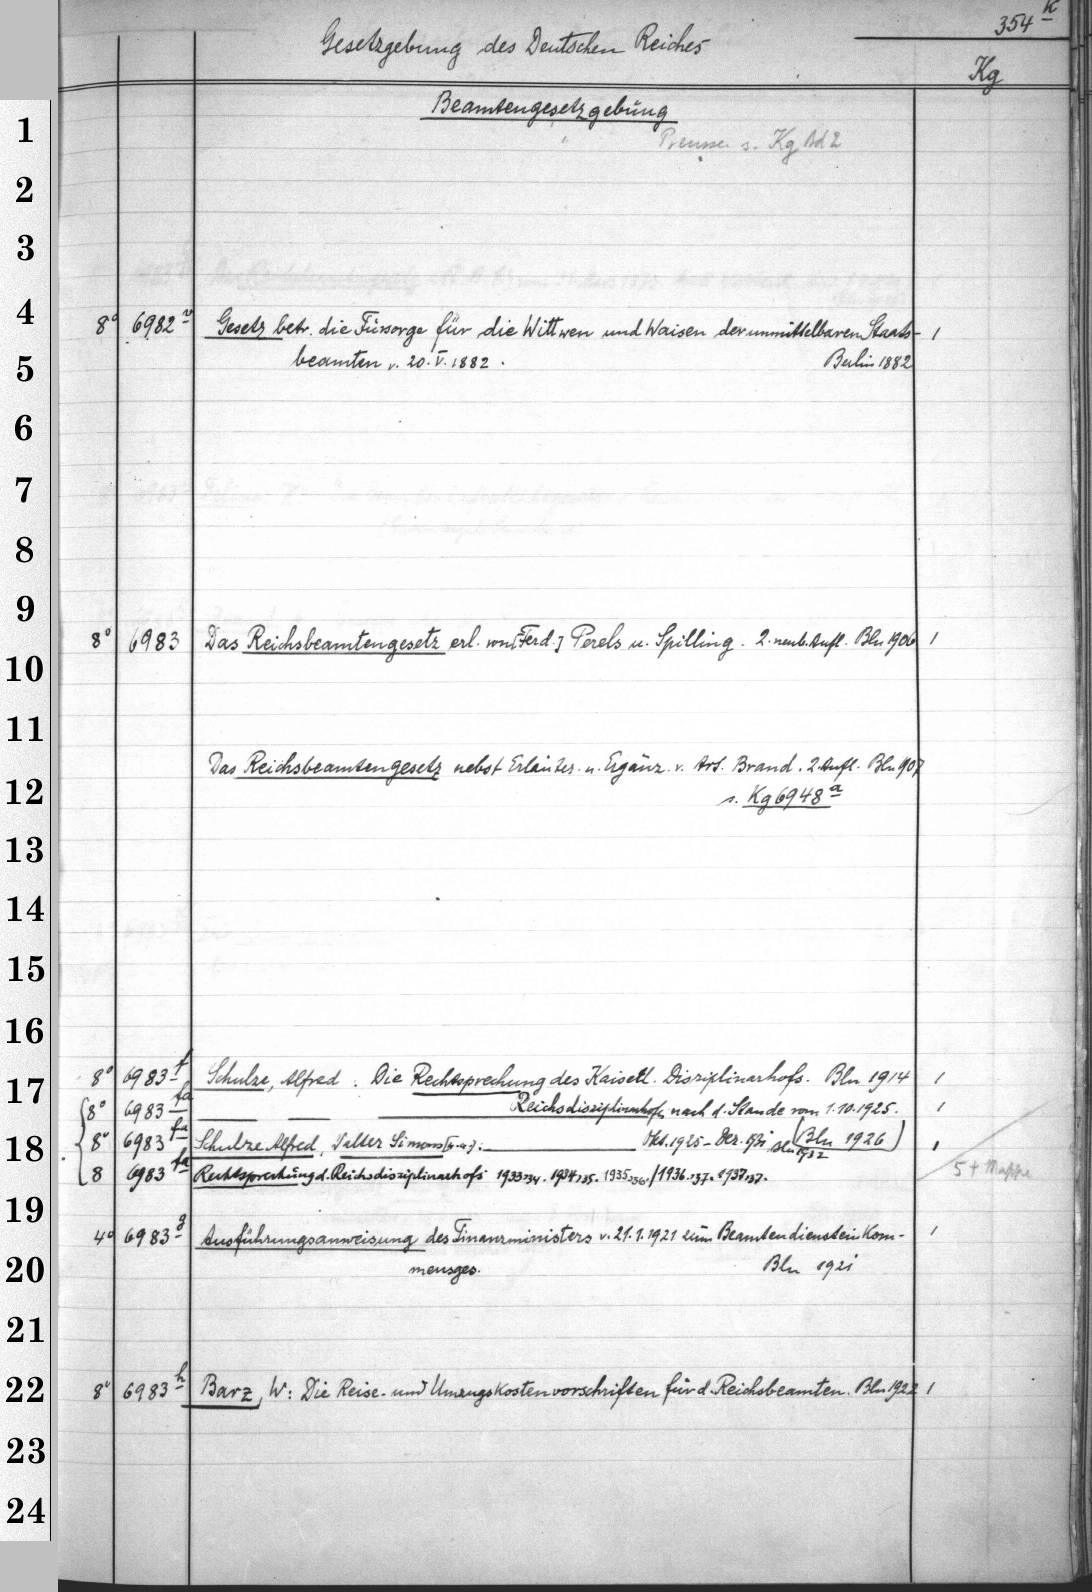 354 K
Gesetzgebung des Deutschen Reiches
Kg
Beamtengesetzgebung
1
Preussen s. Kg Bd 2
2
3
4
8° 6982 v Gesetz betr. die Fürsorge für die Wittwen und Waisen der unmittelbaren Staats- 1
5 beamten v. 20. V. 1882. Berlin 1882
6
7
8
9
8° 6983 Das Reichsbeamtengesetz erl. von [Ferd.] Perels u. Spilling. 2. neub. Aufl. Bln 1906 1
10
11
Das Reichsbeamtengesetz nebst Erläuter. u. Ergänz. v. Art. Brand. 2. Aufl. Bln 907
12 s. Kg 6948 a
13
14
15
16
17 8° 6983 f Schulze, Alfred. Die Rechtsprechung des Kaiserl. Disziplinarhofs. Bln 1914 1
8° 6983 fa Reichsdisziplinarhofs nach d. Stande vom 1.10.1925. 1
18 8° 6983 fa Schulze Alfred, Walter Simons [u.a.]: Okt. 1925 - Dez. 931 Bln 1932 (Bln 1926) 1
8 6983 fa Rechtsprechung d. Reichsdisziplinarhofs 1933/34. 1934/35. 1935/36./1936/37. 1937/37. 5 + Mappe
19
4° 6983 g Ausführungsanweisung des Finanzministers v. 21.1.1921 zum Beamtendiensteinkom- 1
20 mensges. Bln 1921
21
22 8° 6983 h Barz, W: Die Reise- und Umzugskostenvorschriften für d. Reichsbeamten. Bln 1922 1
23
24